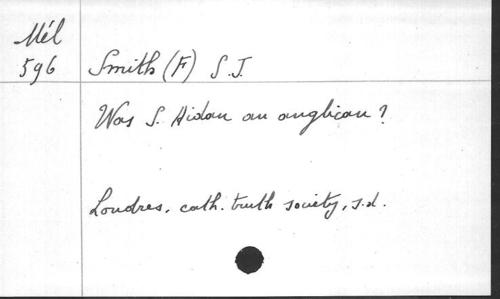 Mél
596
Smith (F) S.J.
Was S. Aidan an anglican ?
Londres, cath. truth society, s.d.